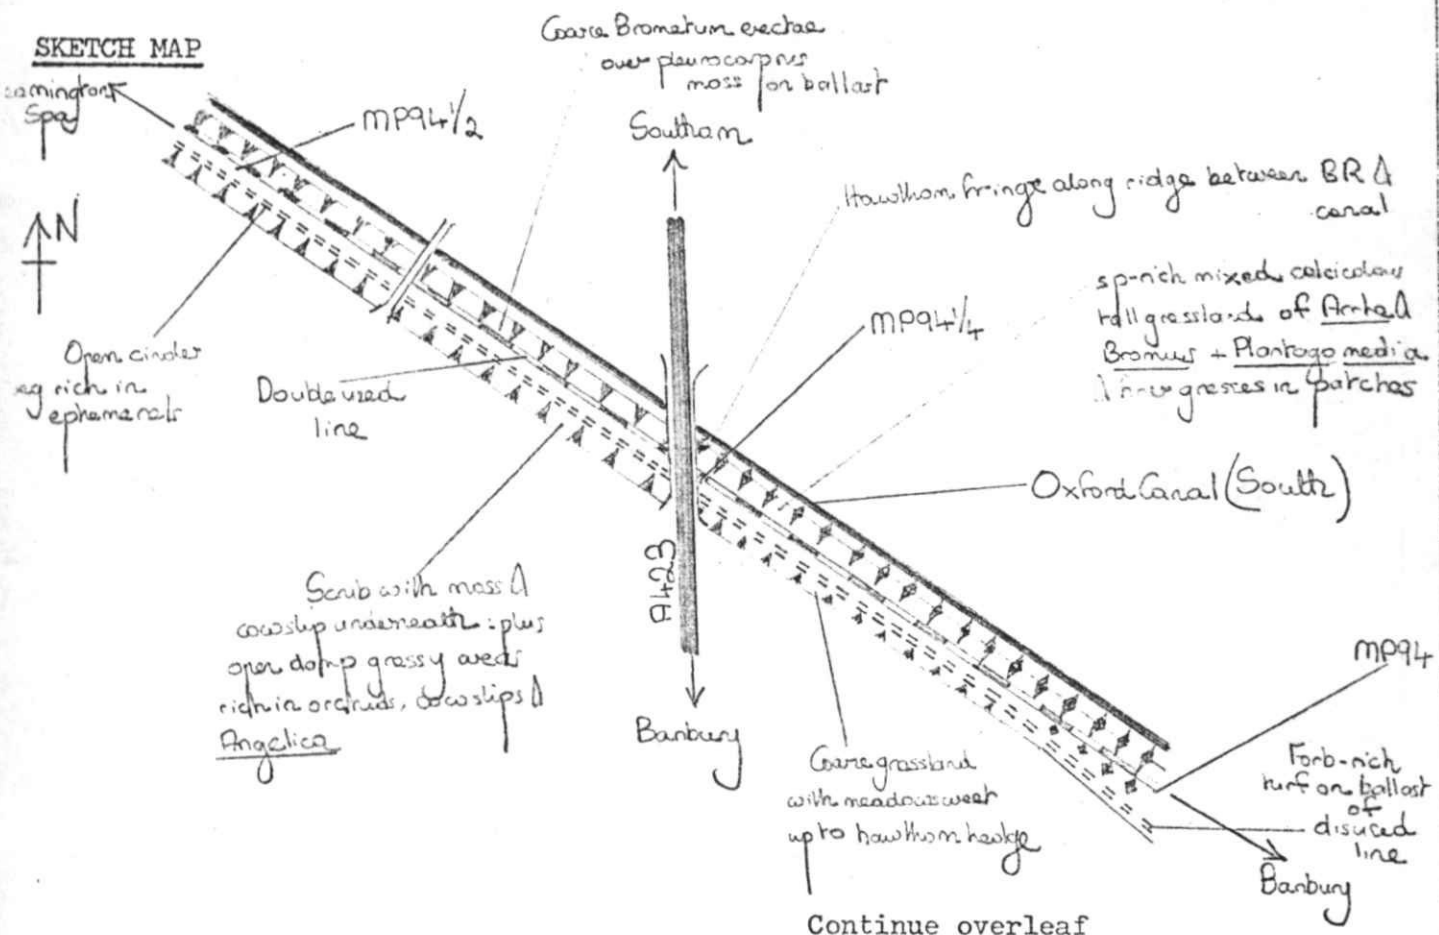 SKETCH MAP
Coarse Brometum erectae
over pleurocarpus
moss on ballast
Leamington
Spa
MP94 1/2
Southam
N
Hawthorn fringe along ridge between BR &
canal
sp-rich mixed calcicolous
tall grassland of Arrhe. &
Bromus + Plantago media
grasses in patches
MP94 1/4
Open cinder
veg rich in
ephemerals
Double used
line
Oxford Canal (South)
A423
Scrub with moss &
cowslip underneath: plus
open damp grassy areas
rich in orchids, cowslips &
Angelica
MP94
Banbury
Coarse grassland
with meadowsweet
up to hawthorn hedge
Forb-rich
turf on ballast
of
disused
line
Banbury
Continue overleaf